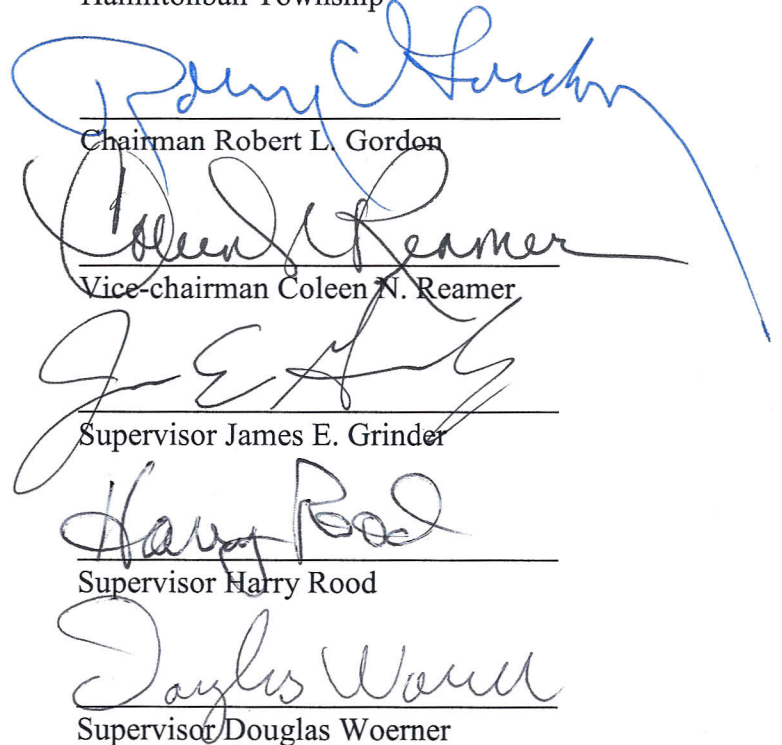 Hamiltonban Township
Chairman Robert L. Gordon
Coleen N Reamer
Vice-chairman Coleen N. Reamer
James E. Grinder
Supervisor James E. Grinder
Harry Rood
Supervisor Harry Rood
Douglas Woerner
Supervisor Douglas Woerner